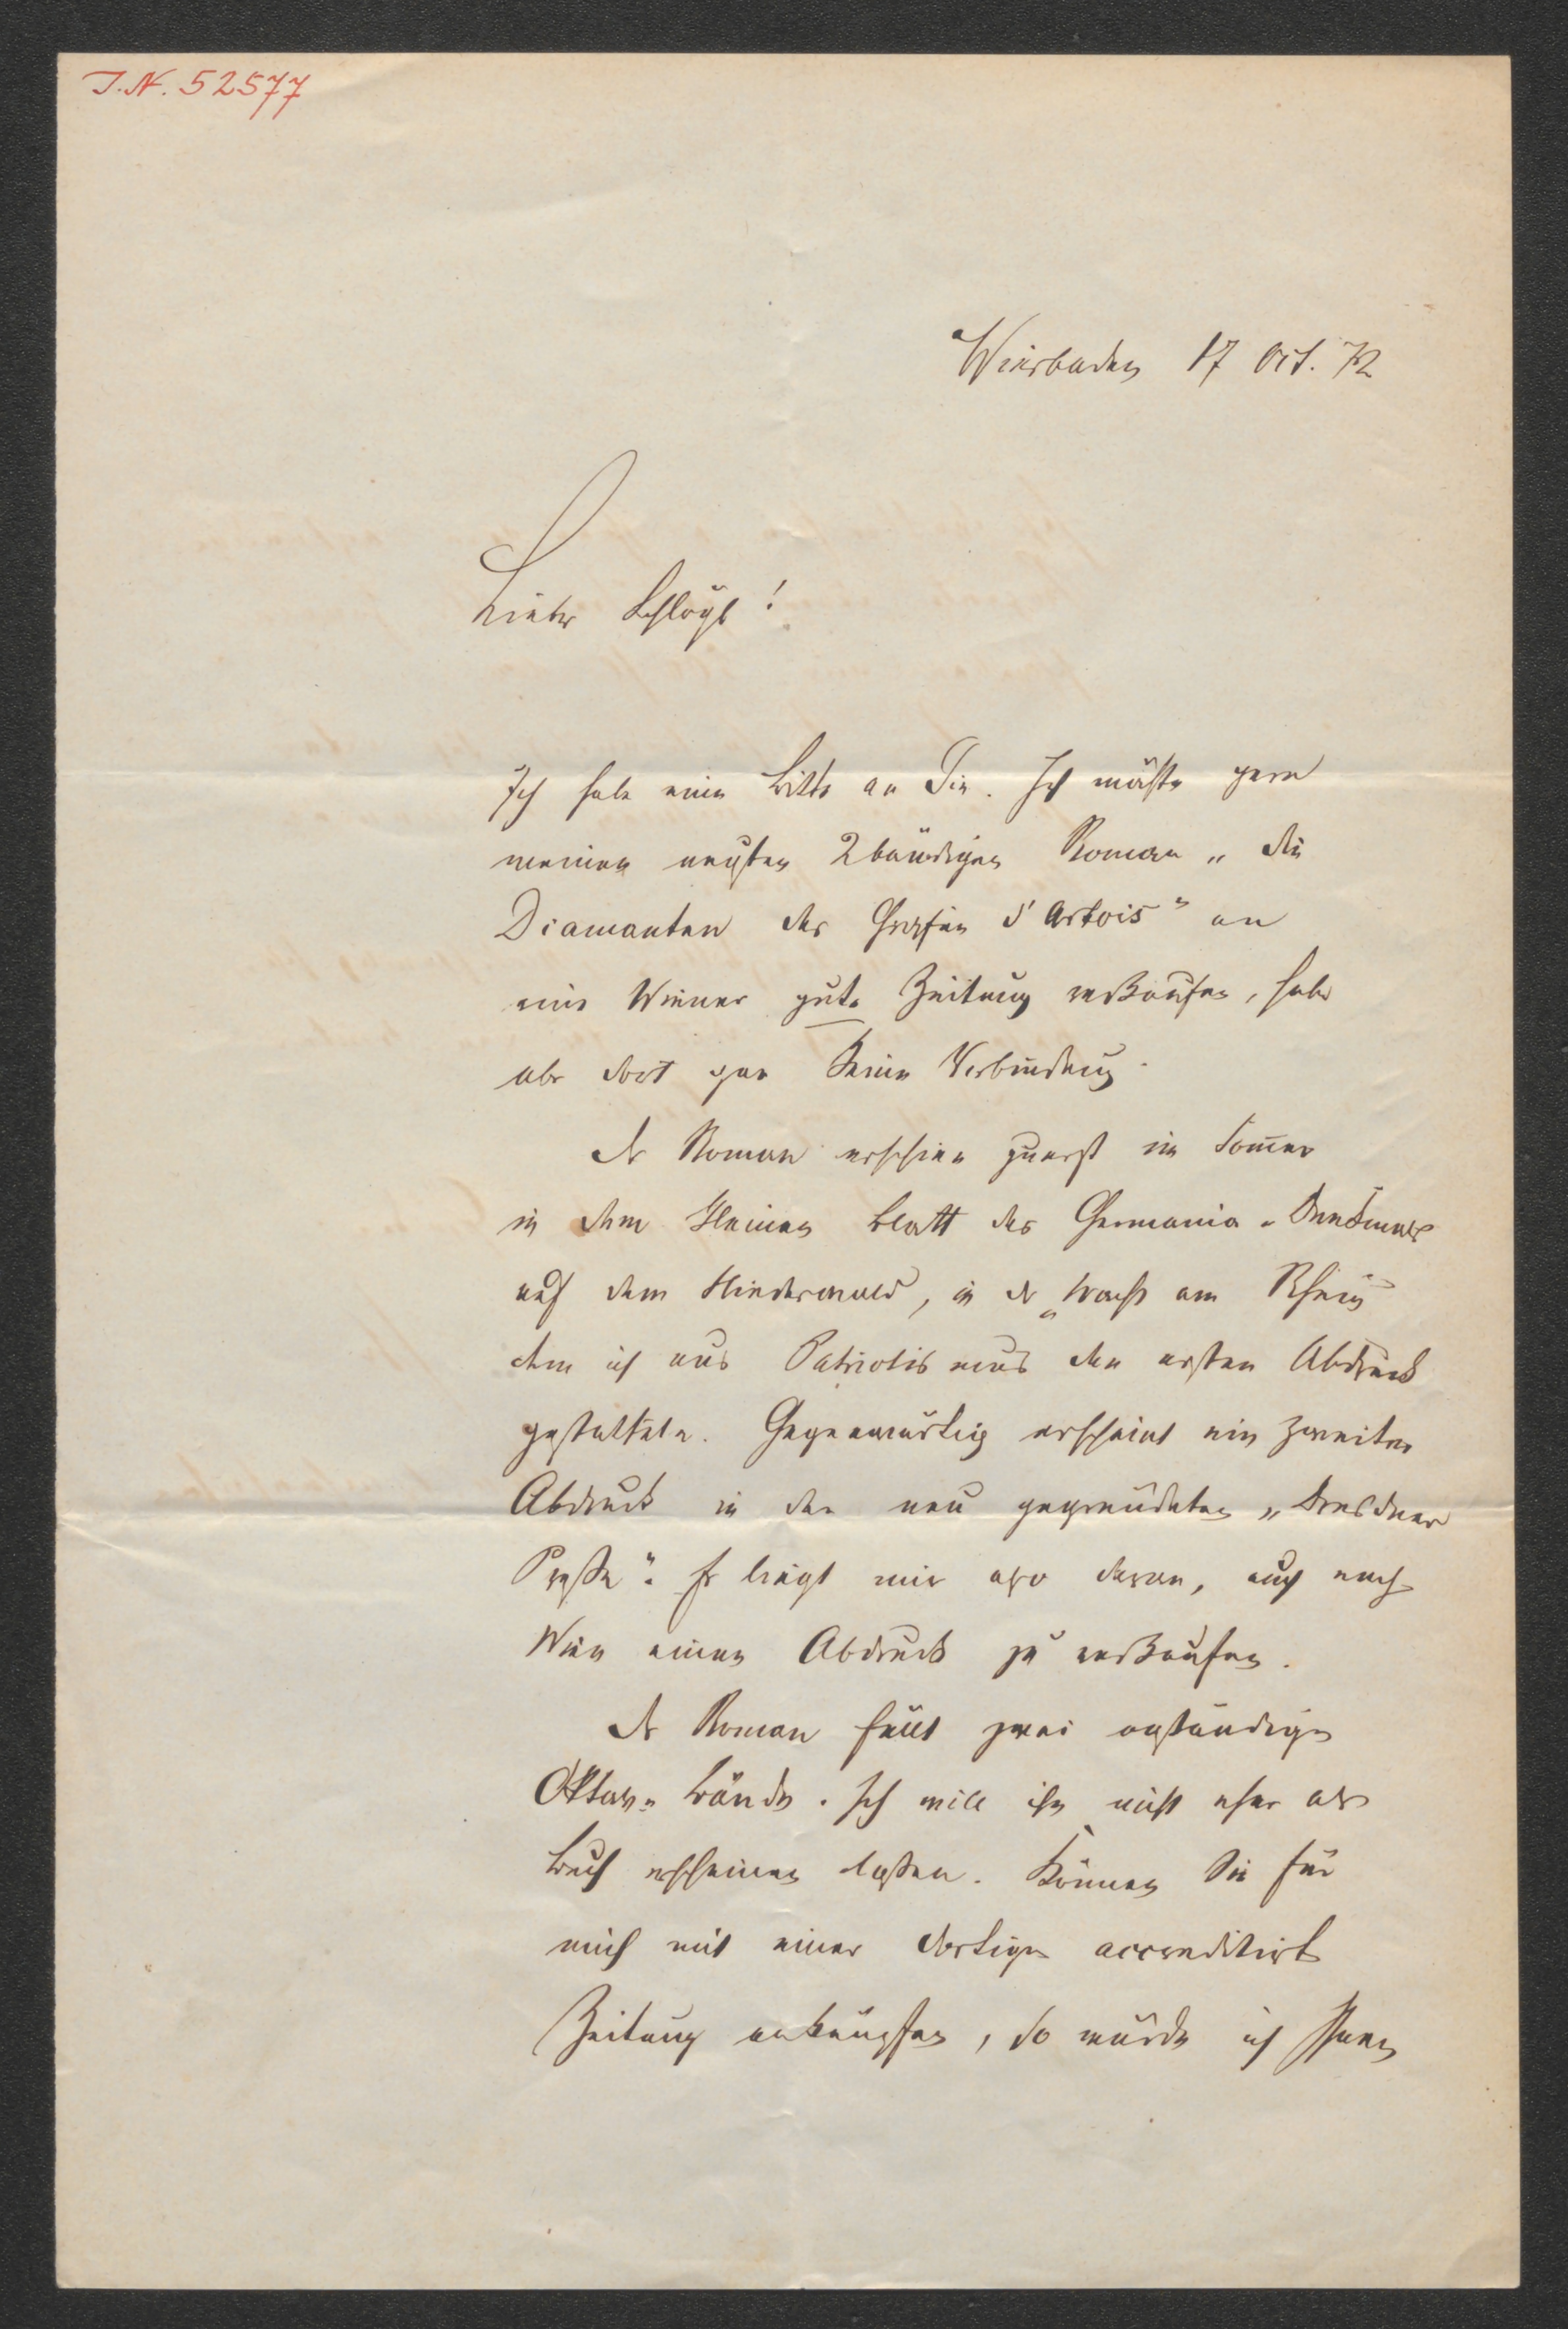 I.N. 52577
Wiesbaden 17 Oct. 72
Lieber Schlögl!
Ich habe eine Bitte an Sie. Ich möchte gern
meinen neusten 2bändigen Roman „die
Diamanten des Grafen d'Artois" an
eine Wiener gute Zeitung verkaufen, habe
aber dort gar keine Verbindung.
Der Roman erschien zuerst im Som̄er
in dem kleinen Blatt des Germania-Denkmals
auf dem Niederwald, in der „Wacht am Rhein
dem ich aus Patriotismus den ersten Abdruck
gestattete. Gegenwärtig erscheint ein zweiter
Abdruck in der neu gegründeten „Dresdner
Presse". Es liegt mir also daran, auch nach
Wien einen Abdruck zu verkaufen.
Der Roman füllt zwei anständige
Oktav-Bände. Ich will ihn nicht eher als
Buch erscheinen laßen. Können Sie für
mich mit einer dortigen accreditirten
Zeitung anknüpfen, so würde ich Ihnen